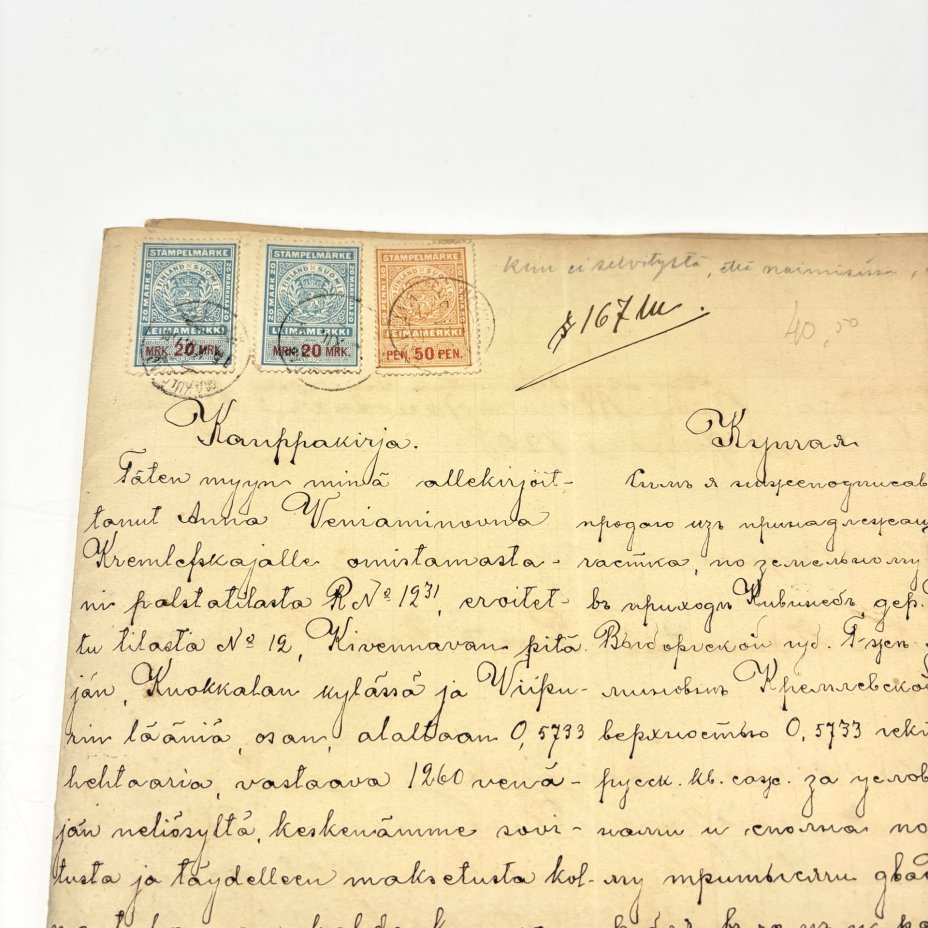 STAMPELMÄRKE
FINLAND SUOMI
LEIMAMERKKI
MRK. 20 MRK.
STAMPELMÄRKE
FINLAND SUOMI
LEIMAMERKKI
MRK. 20 MRK.
STAMPELMÄRKE
FINLAND SUOMI
LEIMAMERKKI
PEN. 50 PEN.
Kun ei selvitystä, että naimisissa,
§ 167
40,50
Kauppakirja.
Täten myyn minä allekirjoit-
tanut Anna Veniaminovna
Kremlefskajalle omistamasta-
ni palstatilasta R№ 12³¹, eroitet-
tu tilasta № 12, Kivennavan pitä
jän, Kuokkalan kylässä ja Viipu-
rin lääniä, osan, alaltaan 0,5733
hehtaaria, vastaava 1260 venä-
jän neliösyltä, keskenämme sovi-
tusta ja täydelleen maksetusta kol-
Купчая
Симъ я нижеподписав
продаю изъ принадлежащ
частка, по земельному
въ приходѣ Кивинебъ, дер.
Выборгской губ.
миновнѣ Кремлевской
верхностью 0,5733 гект
русск. кв. саж. за услов
нами и сполна по
му тритысячи два